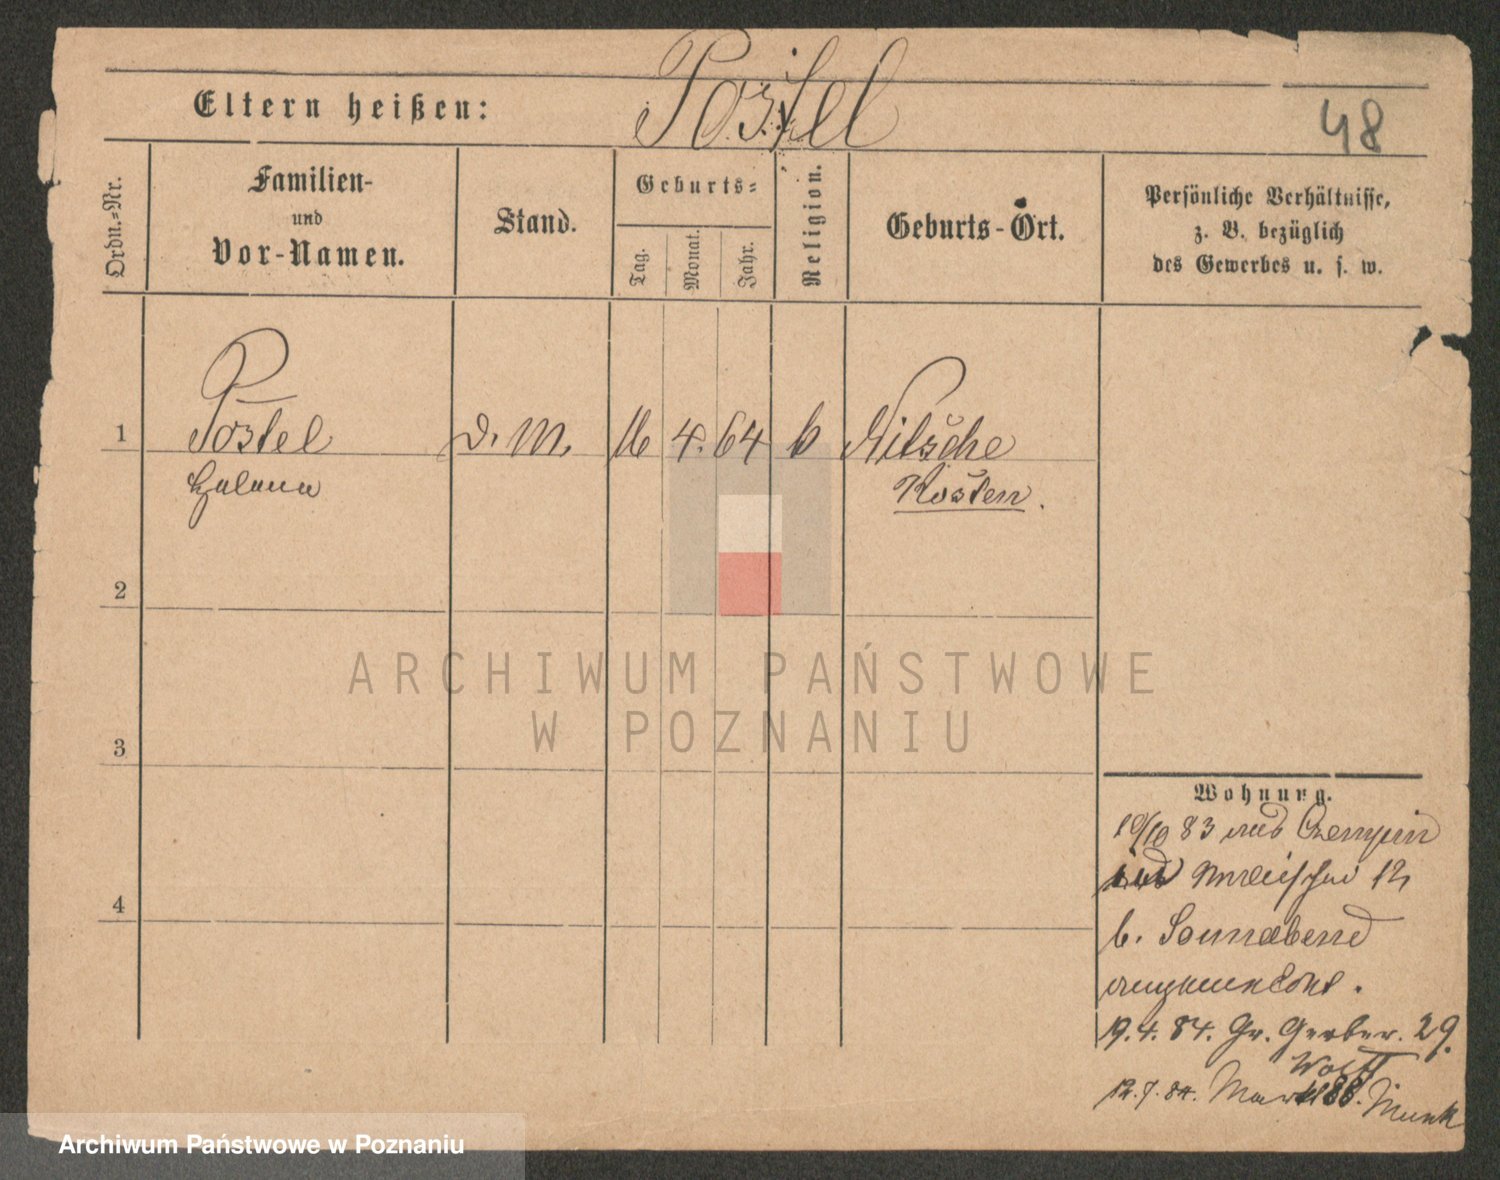 Postel
48
Eltern heißen:
Ordn.=Nr.
Familien-
und
Vor-Namen.
Stand.
Geburts=
Tag.
Monat.
Jahr.
Religion.
Geburts-Ort.
Persönliche Verhältnisse,
z. B. bezüglich
des Gewerbes u. s. w.
1 Postel D. M. 16 4. 64 Nitsche
Helena Kosten.
2
3
4
ARCHIWUM PAŃSTWOWE
W POZNANIU
Wohnung.
10/10 83 aus Czempin
12
b. Sonnabend
angemeldet.
19. 4. 84. Gr. Gerber. 29.
Wolff
12. 7. 84. Markt 88. Munk
Archiwum Państwowe w Poznaniu